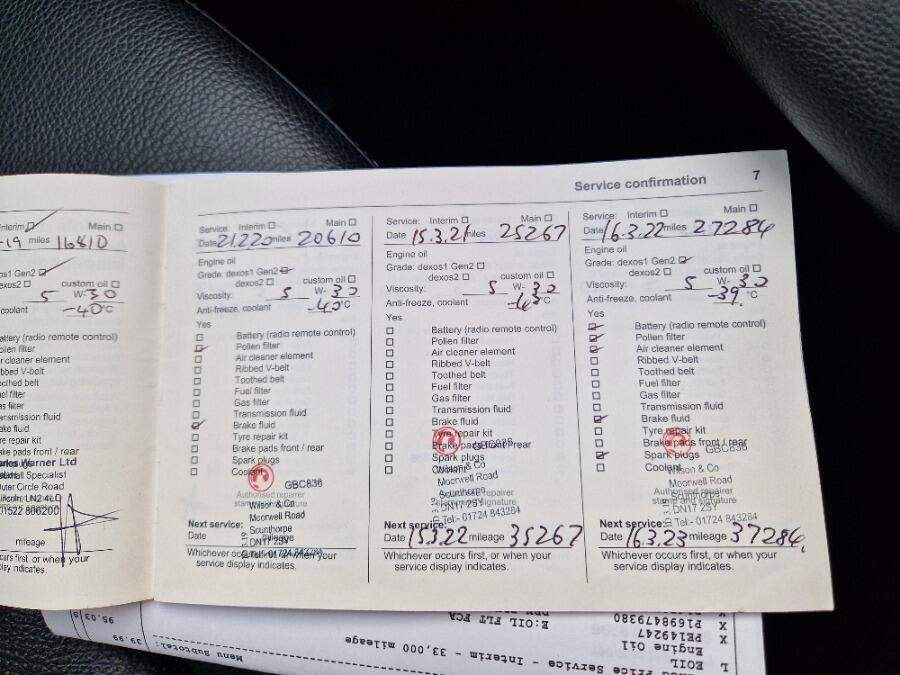 Service confirmation 7
Interim
Main
-19 miles 16810
dexos1 Gen2
custom oil
5 W-30
coolant -40°C
Pollen filter
Air cleaner element
Ribbed V-belt
Toothed belt
Fuel filter
Gas filter
Transmission fluid
Brake fluid
Tyre repair kit
Brake pads front / rear
Charles Warner Ltd
Specialist
Outer Circle Road
Lincoln LN2 4LQ
mileage
occurs first, or when your
display indicates.
Service: Interim Main
Date 21.2.20 miles 20610
Engine oil
Grade: dexos1 Gen2
dexos2 custom oil
Viscosity: 5 W- 30
Anti-freeze, coolant -40°C
Yes
Battery (radio remote control)
Pollen filter
Air cleaner element
Ribbed V-belt
Toothed belt
Fuel filter
Gas filter
Transmission fluid
Brake fluid
Tyre repair kit
Brake pads front / rear
Spark plugs
Coolant
GBC836
Authorised repairer
stamp and signature
Wilson & Co
Moorwell Road
Scunthorpe
DN17 2SY
Tel:- 01724 843284
Next service:
Date mileage
Whichever occurs first, or when your
service display indicates.
Service: Interim Main
Date 15.3.21 miles 25267
Engine oil
Grade: dexos1 Gen2
dexos2 custom oil
Viscosity: 5 W- 30
Anti-freeze, coolant °C
Yes
Battery (radio remote control)
Pollen filter
Air cleaner element
Ribbed V-belt
Toothed belt
Fuel filter
Gas filter
Transmission fluid
Brake fluid
Tyre repair kit
Brake pads front / rear
Spark plugs
Coolant
GBC836
Wilson & Co
Moorwell Road
Scunthorpe
DN17 2SY
Tel:- 01724 843284
Next service:
Date 15.3.22 mileage 35267
Whichever occurs first, or when your
service display indicates.
Service: Interim Main
Date 16.3.22 miles 27284
Engine oil
Grade: dexos1 Gen2
dexos2 custom oil
Viscosity: 5 W- 30
Anti-freeze, coolant -39. °C
Yes
Battery (radio remote control)
Pollen filter
Air cleaner element
Ribbed V-belt
Toothed belt
Fuel filter
Gas filter
Transmission fluid
Brake fluid
Tyre repair kit
Brake pads front / rear
Spark plugs
Coolant
GBC836
Authorised repairer
stamp and signature
Wilson & Co
Moorwell Road
Scunthorpe
DN17 2SY
Tel:- 01724 843284
Next service:
Date 16.3.23 mileage 37284
Whichever occurs first, or when your
service display indicates.
E:OIL FLT FCA
X P1698479380
X PE149247
Engine Oil
L EOIL
Price Service - Interim - 33,000 mileage
Menu Subtotal: 39.99
95.03